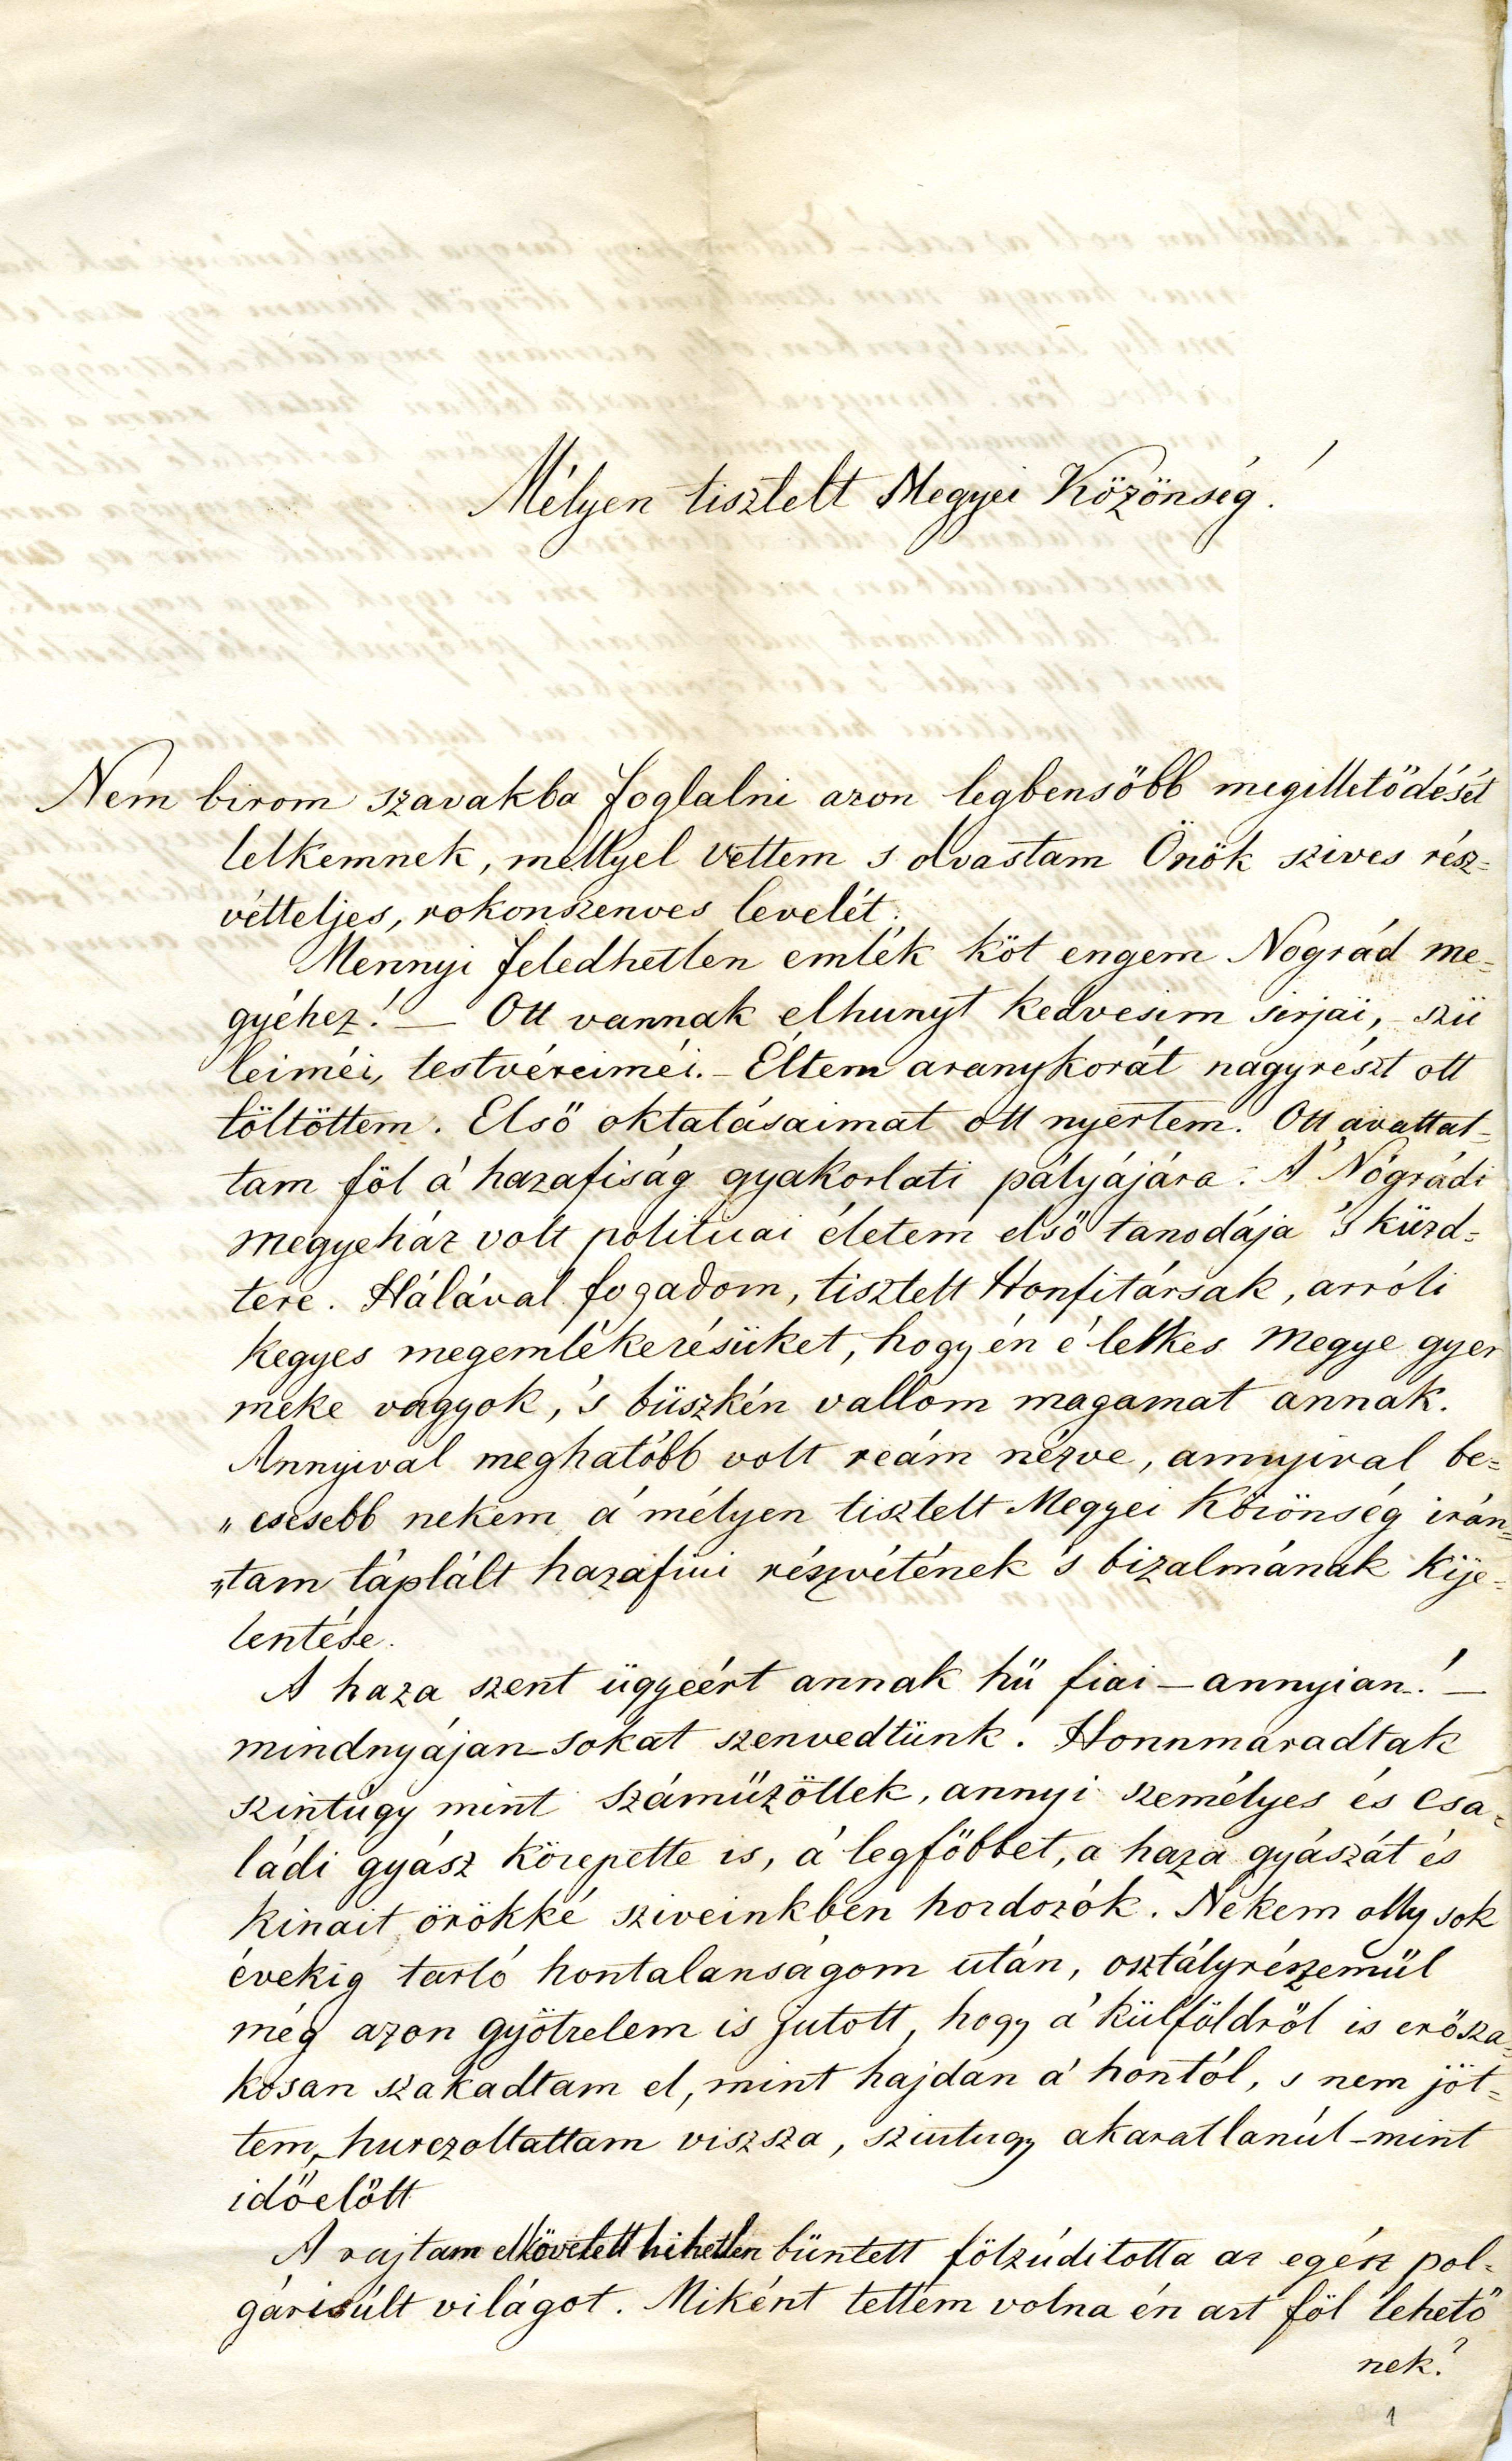 Mélyen tisztelt Megyei Közönség!
Nem birom szavakba foglalni azon legbensöbb megilletödését
lelkemnek, mellyel vettem s olvastam Önök szives rész=
vétteljes, rokonszenves levelét.
Mennyi feledhetlen emlék köt engem Nográd me=
gyéhez! — Ott vannak elhunyt kedvesim sirjai, – szü
leiméi, testvéreiméi. – Éltem aranykorát nagyrészt ott
töltöttem. Elsö oktatásaimat ott nyertem. Ott avattat=
tam föl a' hazafiság gyakorlati pályájára. A' Nógrádi
megyeház volt polituai életem elsö tanodája 's küzd=
tere. Hálával fogadom, tisztelt Honfitársak, arróli
kegyes megemlékezésüket, hogy én e' lelkes megye gyer
meke vagyok, 's büszkén vallom magamat annak.
Annyival meghatóbb volt reám nézve, annyival be=
„ csesebb nekem a' mélyen tisztelt Megyei Közönség irán=
„tam táplált hazafiui részvétének 's bizalmának kije=
lentése.
A haza szent ügyeért annak hü fiai – annyian! –
mindnyájan – sokat szenvedtünk. Honnmaradtak
szintúgy mint száműzöttek, annyi személyes és csa=
ládi gyász közepette is, a' legföbbet, a haza gyászát és
kinait örökké sziveinkben hordozók. Nekem olly sok
évekig tartó hontalanságom után, osztályrészemül
még azon gyötrelem is jutott, hogy a' külföldröl is erösza=
kosan szakadtam el, mint hajdan a' hontól, s nem jöt=
tem, hurczoltattam viszsza, szintugy akaratlanúl – mint
idö elött
A rajtam elkövetett hihetlen büntett fölzúditotta az egész pol=
gárisúlt világot. Miként tettem volna én azt föl lehetö
nek?
1